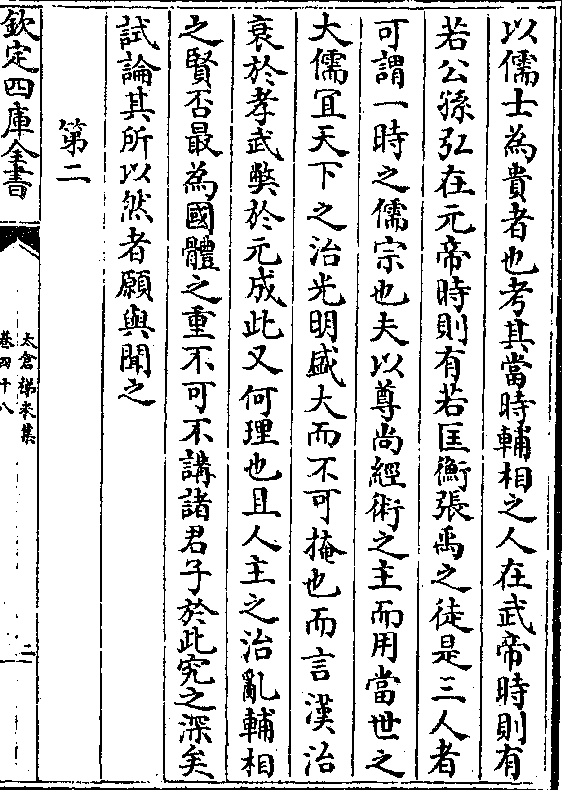 以儒士為貴者也考其當時輔相之人在武帝時則有
若公孫弘在元帝時則有若匡衡張禹之徒是三人者
可謂一時之儒宗也夫以尊尚經術之主而用當世之
大儒冝天下之治光明盛大而不可掩也而言漢治
衰於孝武弊於元成此又何理也且人主之治亂輔相
之賢否最為國體之重不可不講諸君子於此究之深矣
試論其所以然者願與聞之
第二
欽定四庫全書
太倉稊米集
卷四十八
二